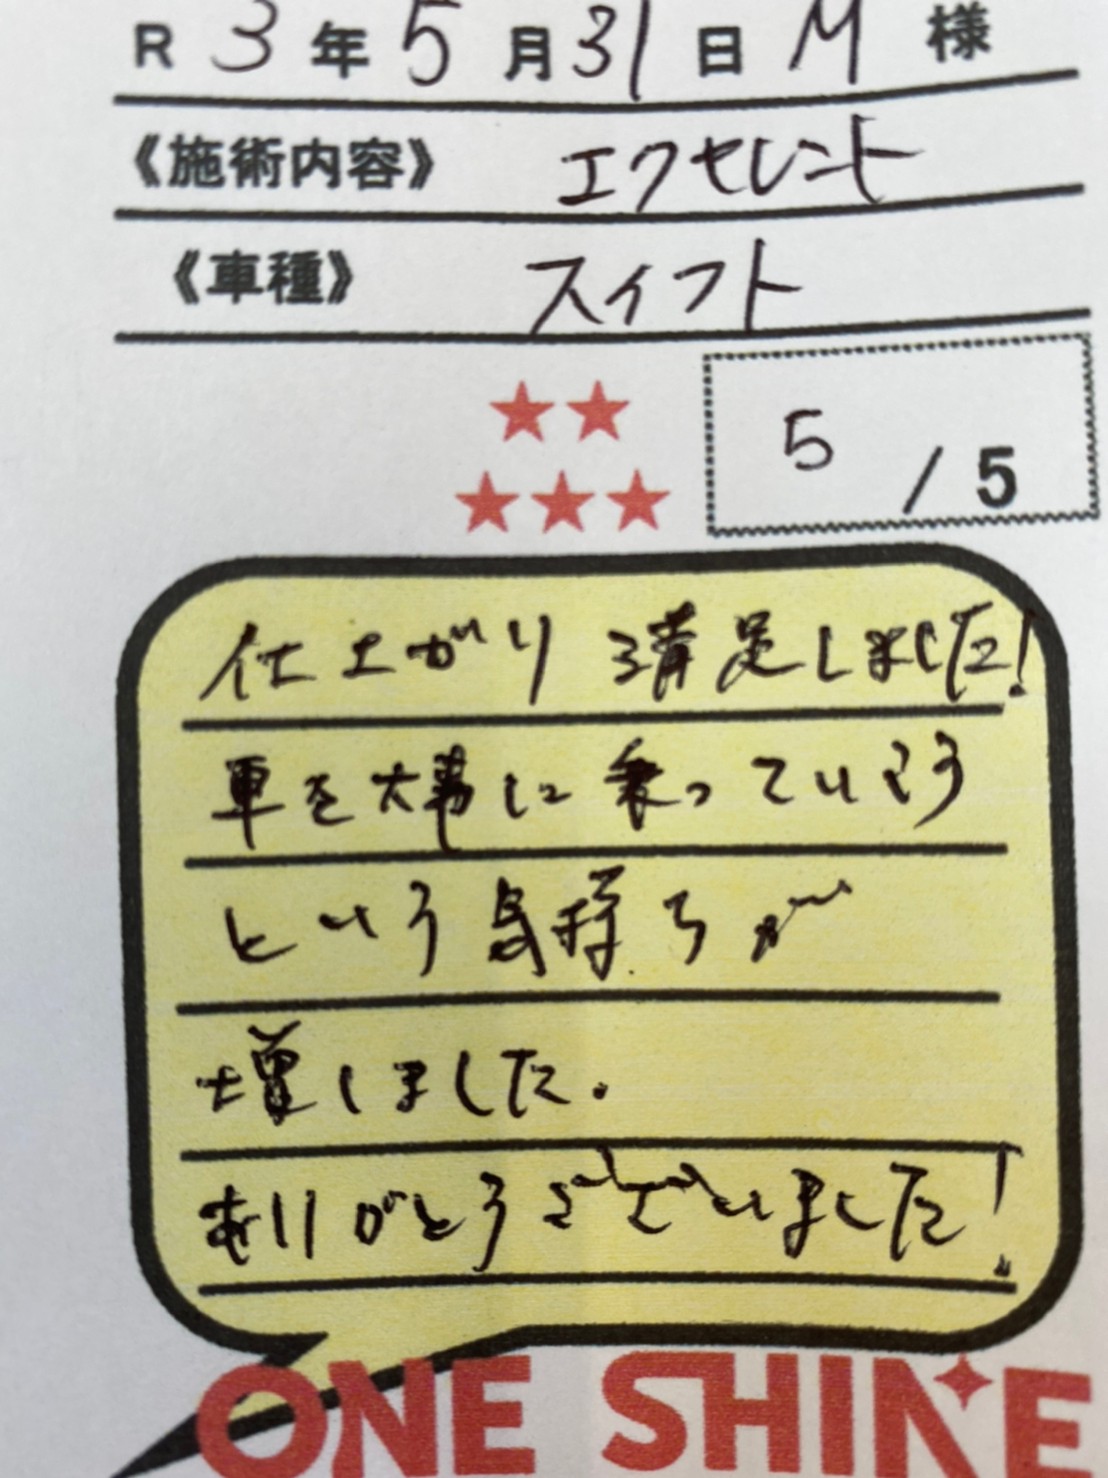 R 3 年 5 月 31 日 M 様
《施術内容》 エクセレント
《車種》 スイフト
5 / 5
仕上がり 満足しました!
車を大事に乗っていこう
という気持ちが
増しました.
ありがとうございました!
ONE SHINE